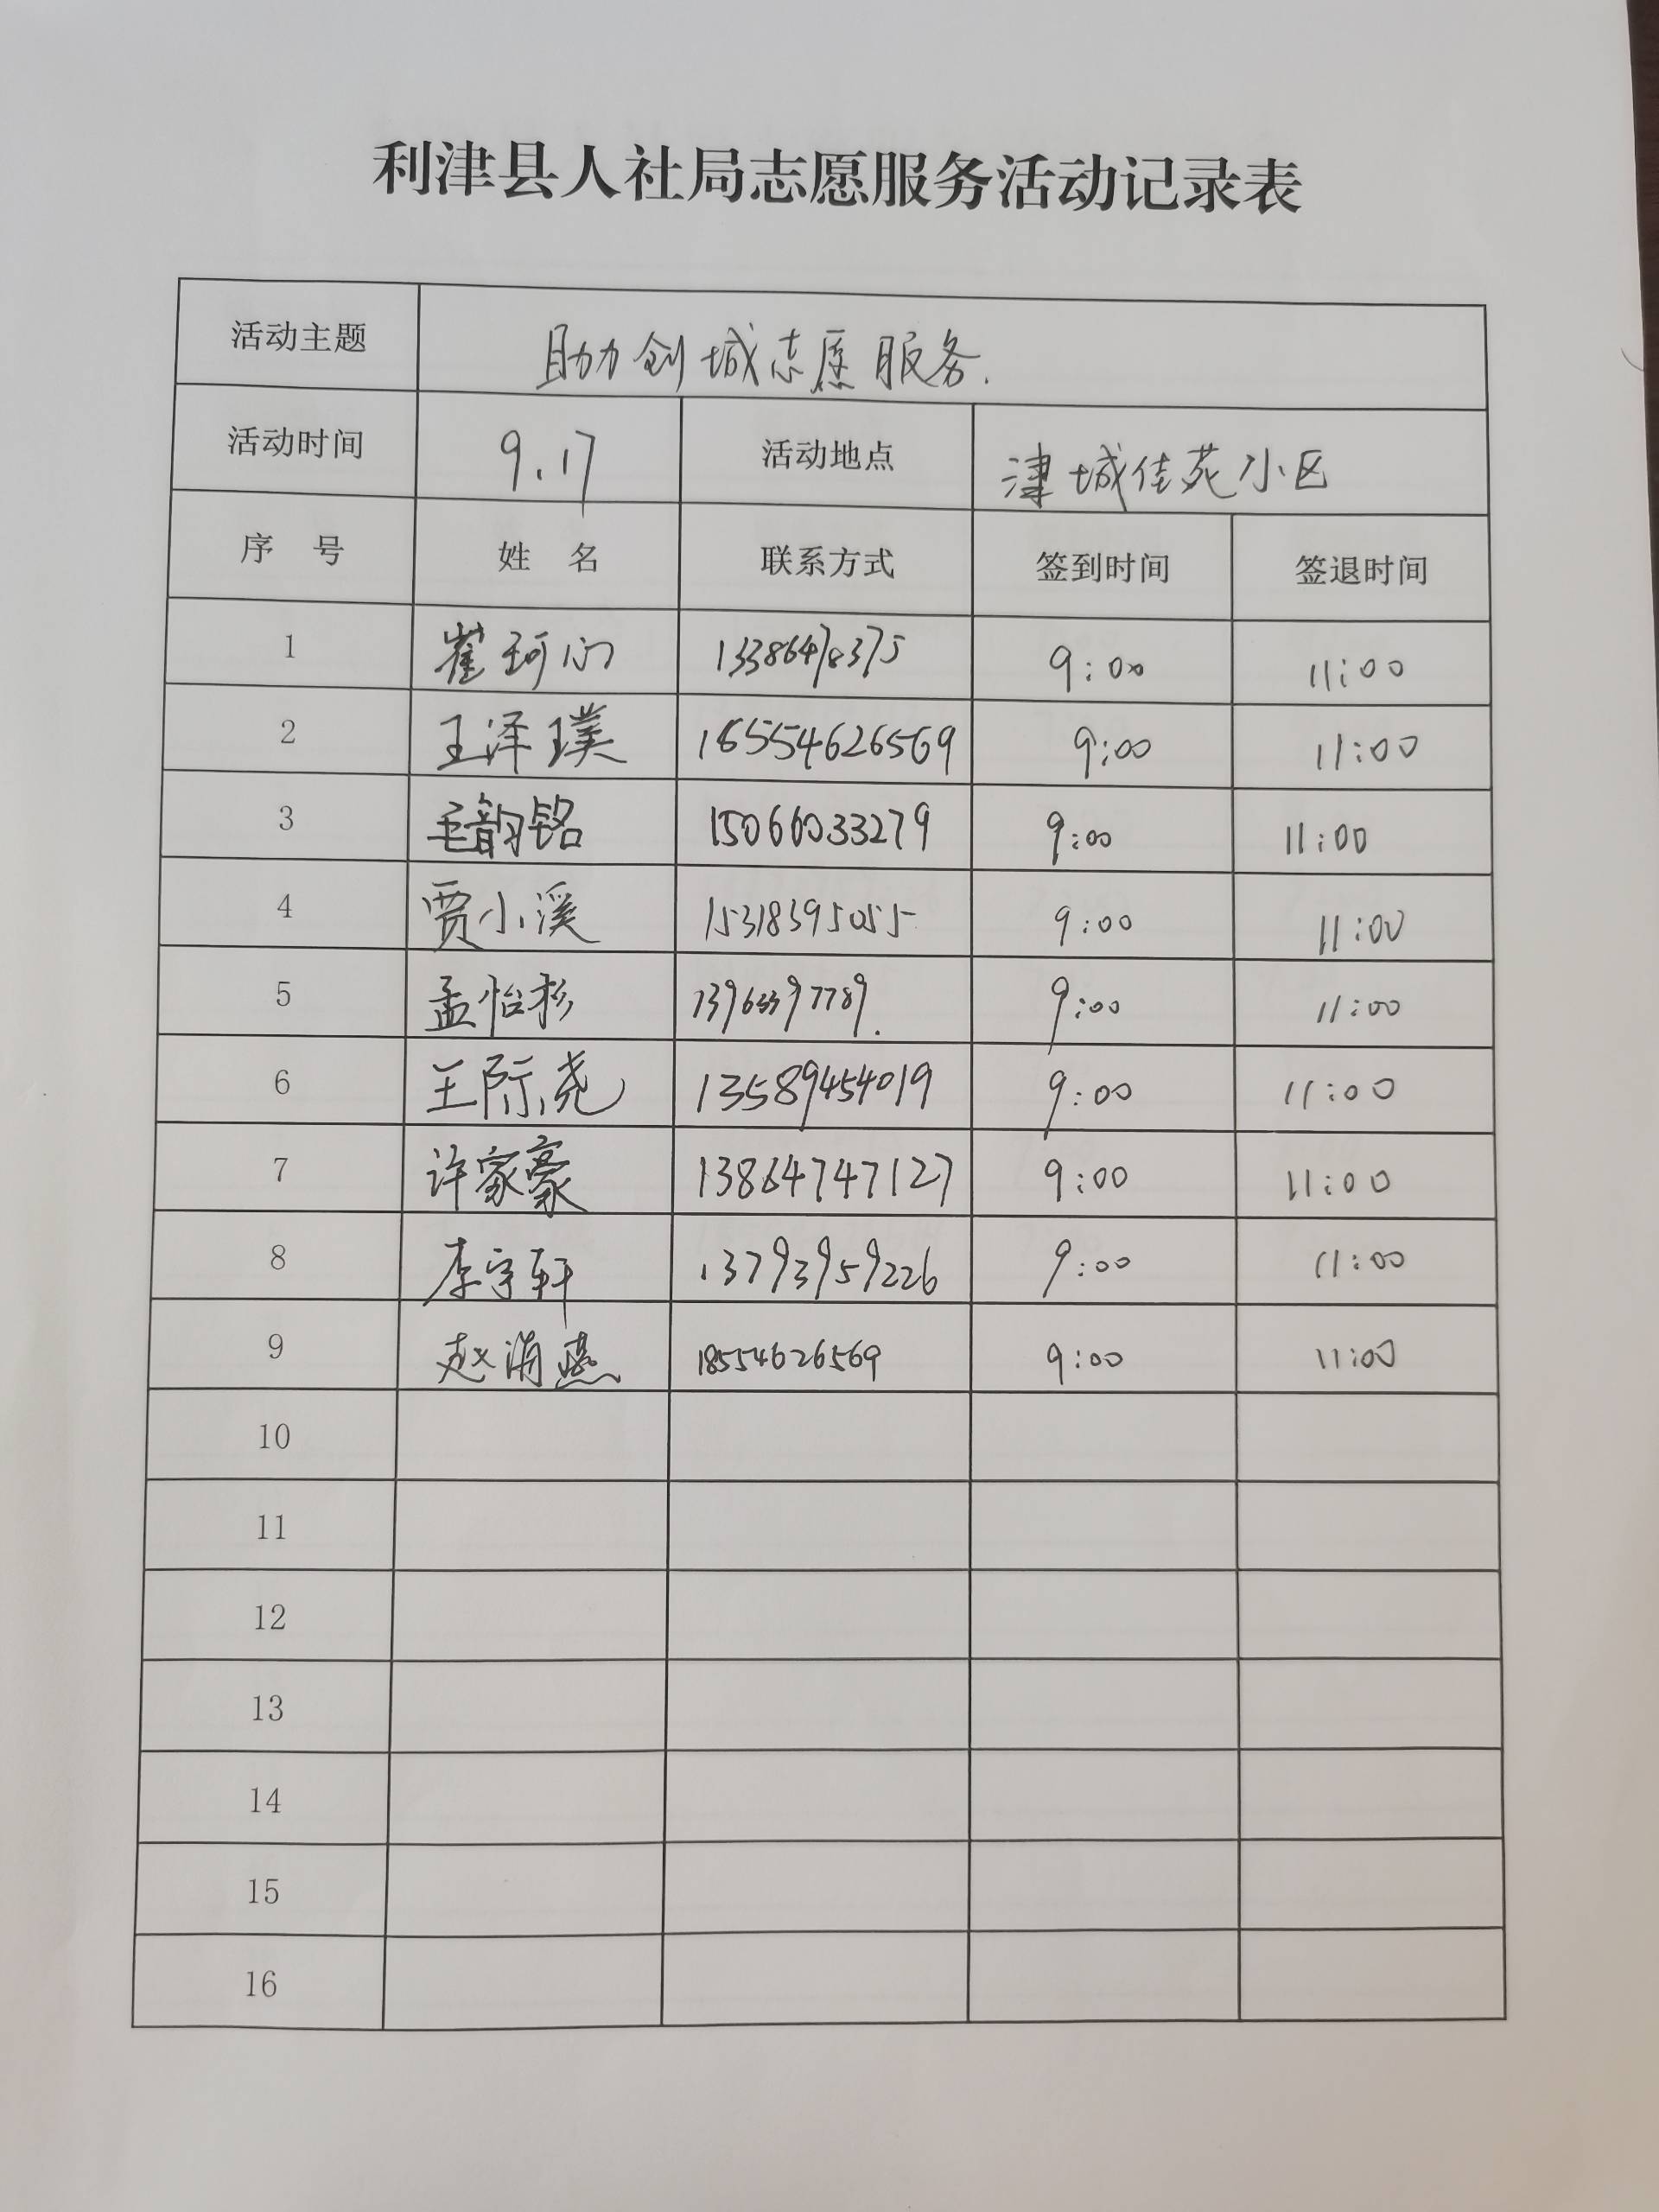 利津县人社局志愿服务活动记录表
活动主题 助力创城志愿服务.
活动时间 9.17 活动地点 津城佳苑小区
序 号 姓 名 联系方式 签到时间 签退时间
1 崔珂 13386478375 9:00 11:00
2 王泽璞 18554626569 9:00 11:00
3 毛韵铭 15066033279 9:00 11:00
4 贾小溪 15318395055 9:00 11:00
5 孟怡杉 13963397789. 9:00 11:00
6 王际尧 13589454019 9:00 11:00
7 许家豪 13864747127 9:00 11:00
8 李宇轩 13793959226 9:00 11:00
9 赵 燕 18554626569 9:00 11:00
10
11
12
13
14
15
16